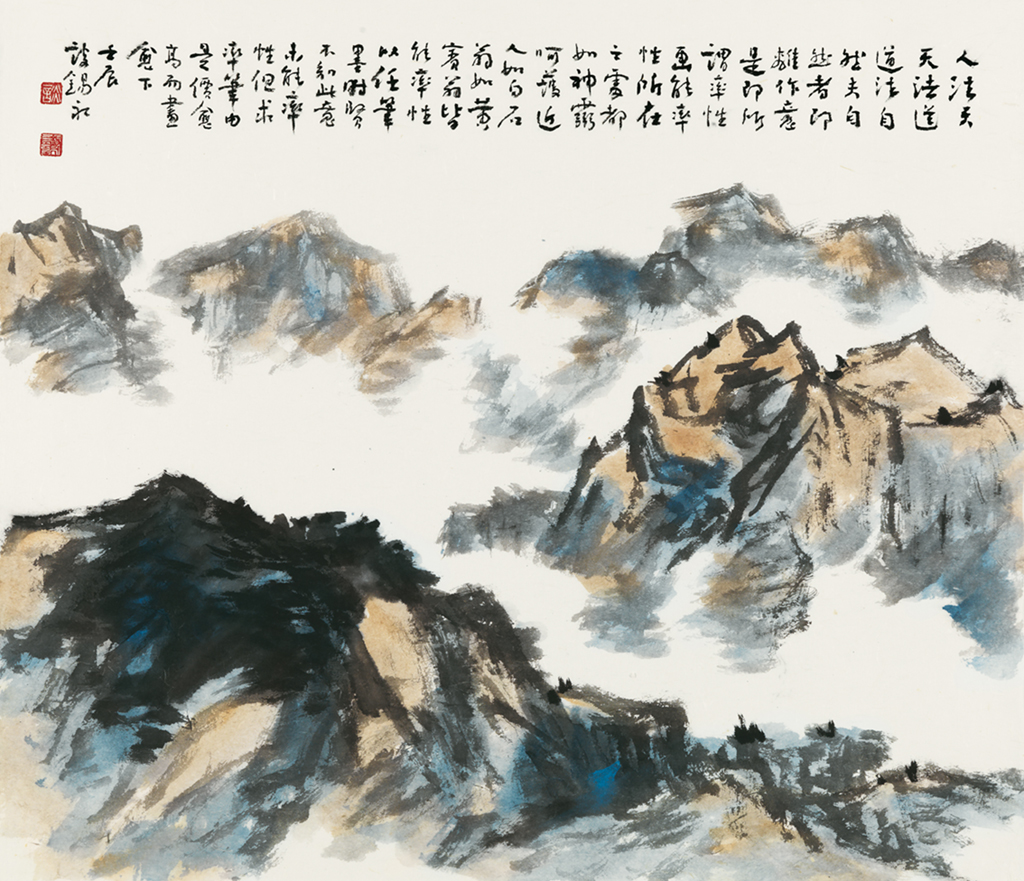 人法天
天法道
道法自
然夫自
然者即
離作意
是即所
謂率性
畫能率
性所在
之處都
如神靈
呵護近
人如白石
翁如黃
賓翁皆
能率性
以任筆
墨時賢
不知此意
未能率
性但求
率筆由
是價愈
高而畫
愈下
壬辰
談錫永